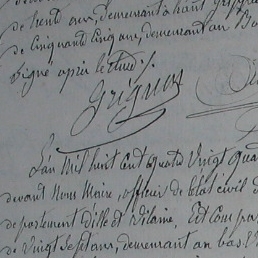 de trent ans, demeurant à haut
de Cinquant Cinq ans, demeurant au
Signé après lecture /.
Grignon
L'an Mil huit cent quatre Vingt
devant Nous Maire, officier de l'état civil
département d'ille et Vilaine, Est comparu
de Vingt Sept ans, demeurant au bas